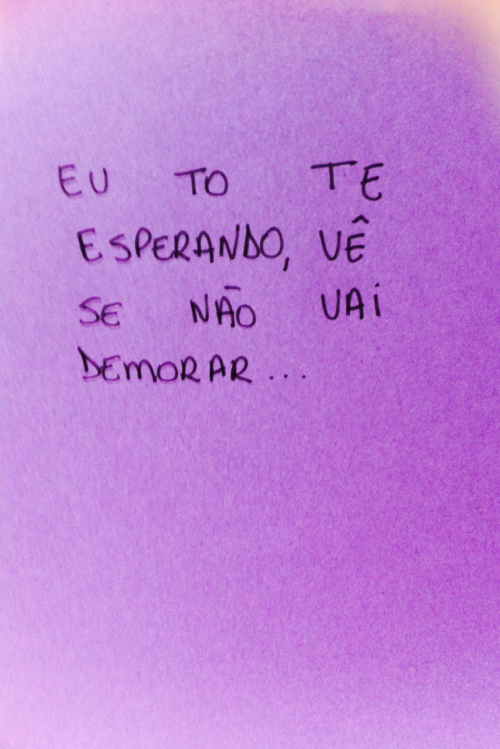 EU TO TE
ESPERANDO, VÊ
SE NÃO VAi
DEMORAR...